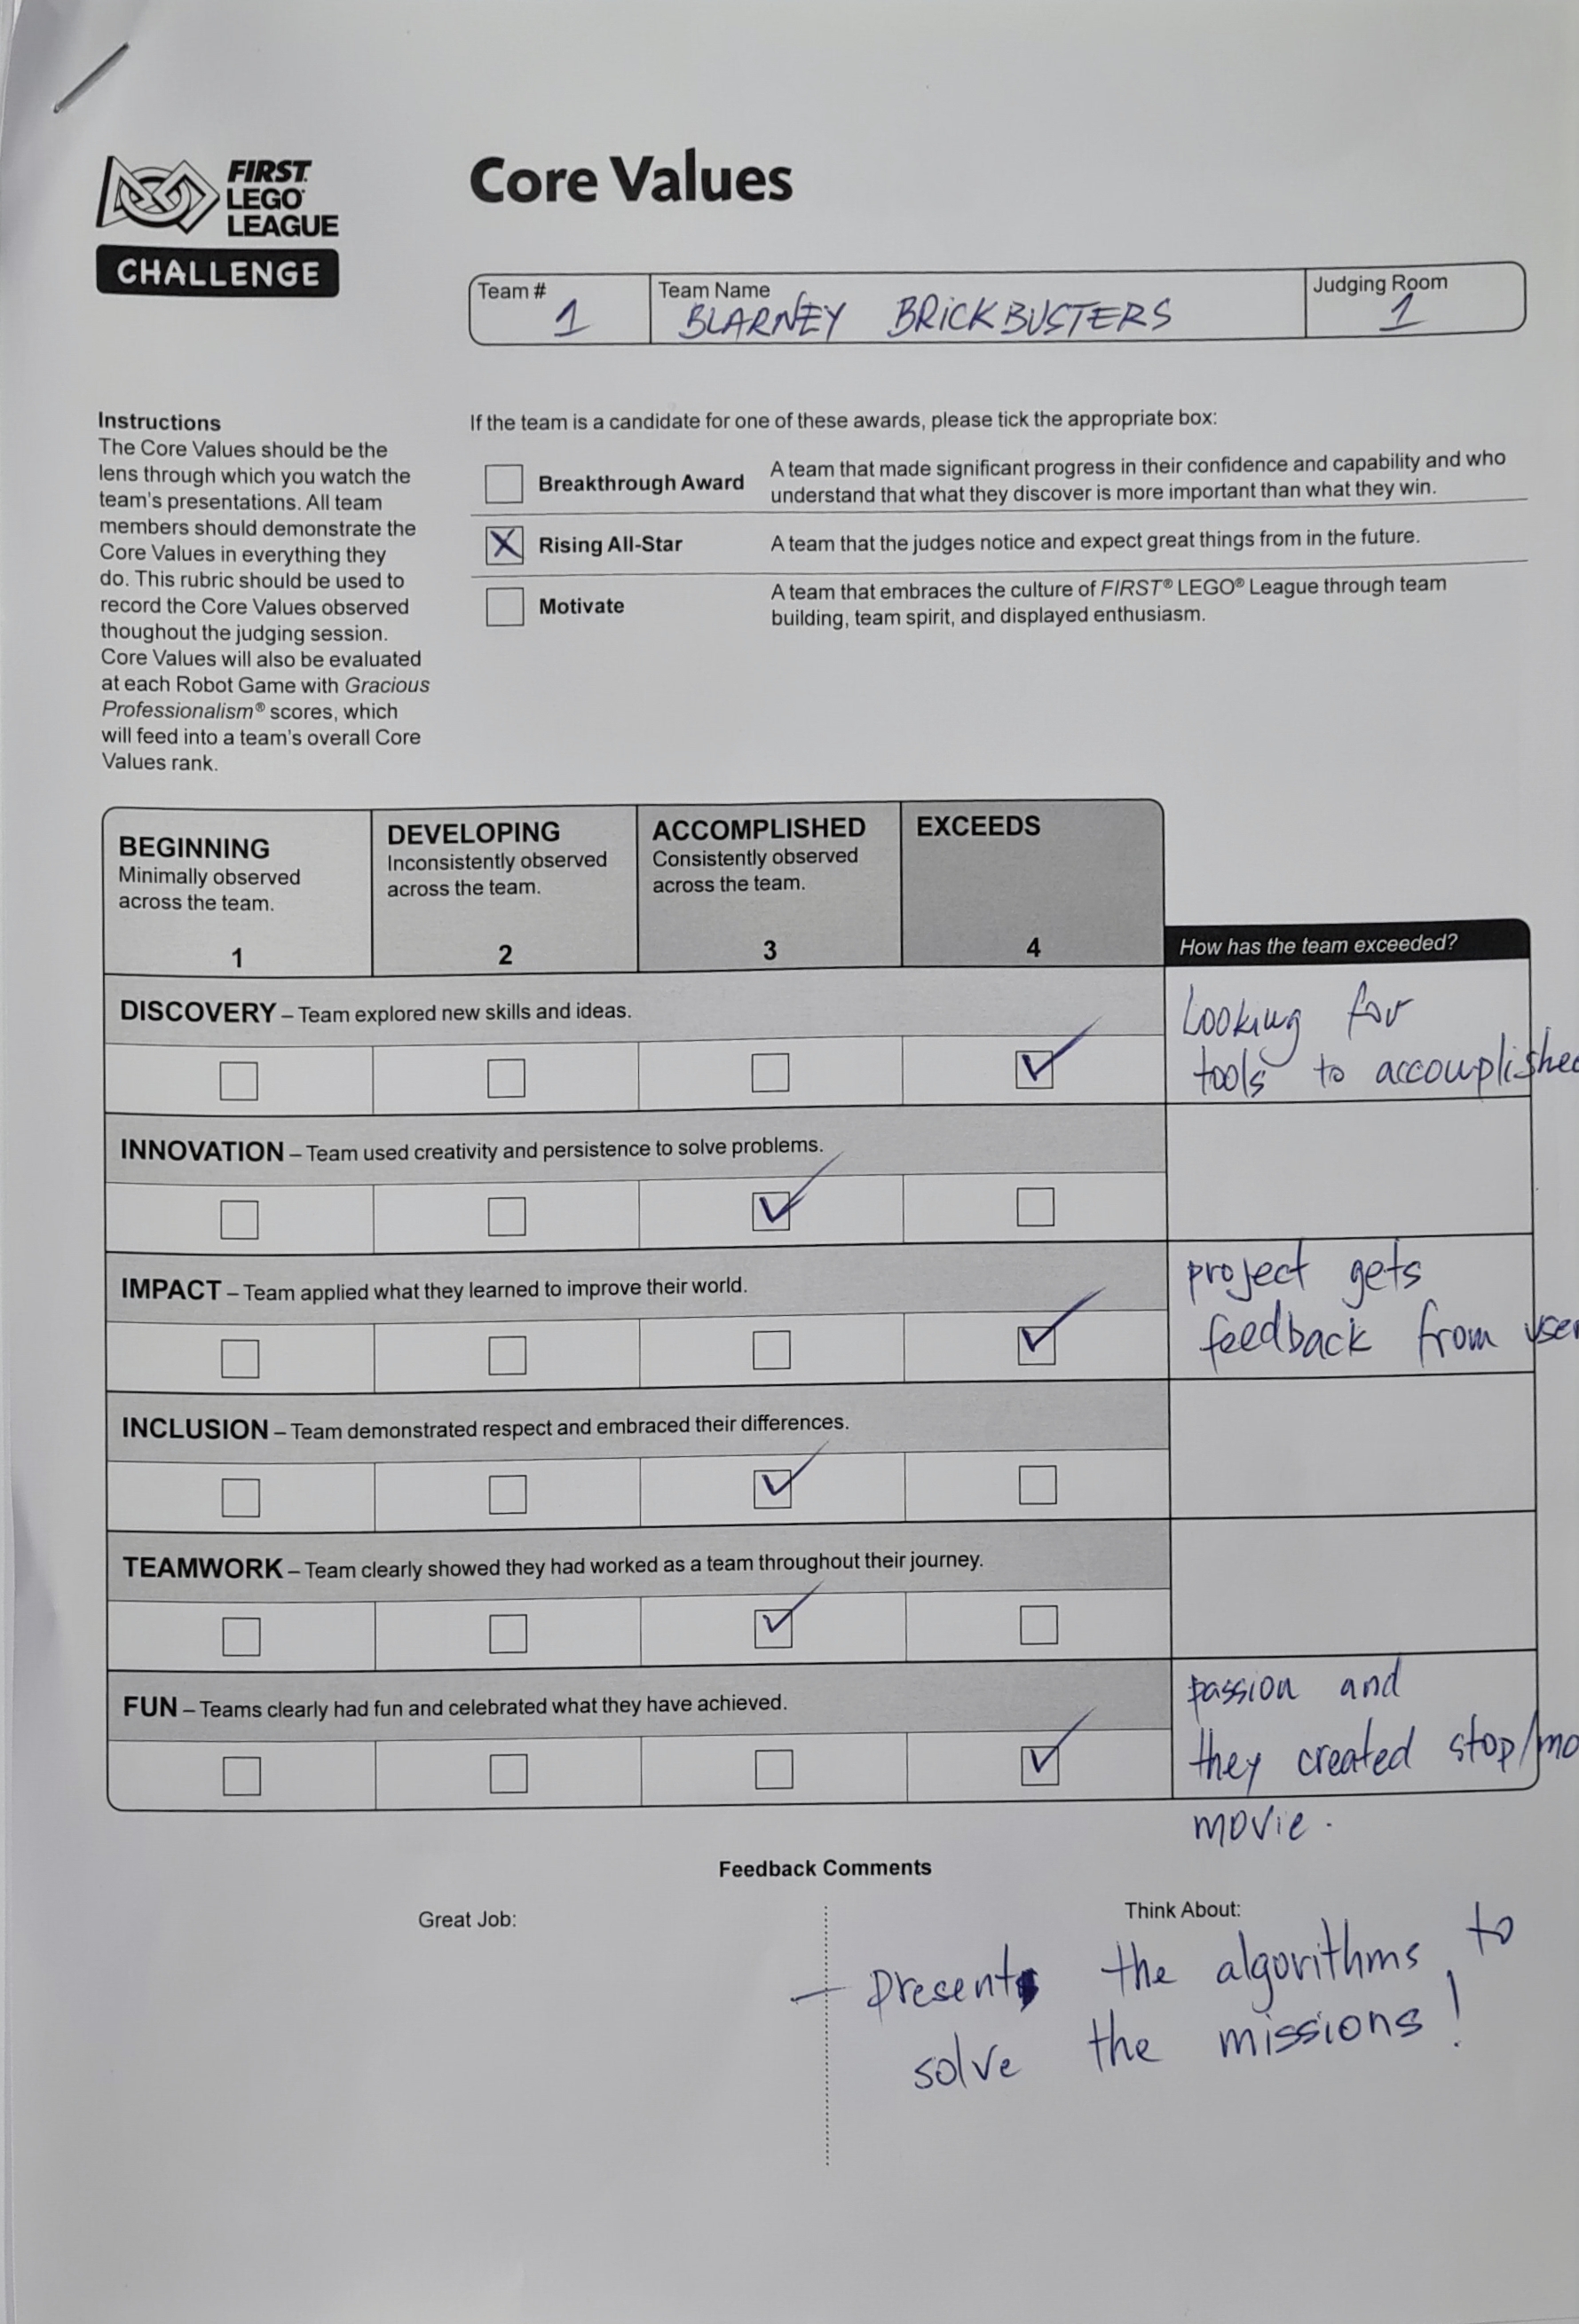 FIRST
LEGO
LEAGUE
CHALLENGE
Core Values
Team #
1
Team Name
BLARNEY BRICKBUSTERS
Judging Room
1
Instructions
The Core Values should be the
lens through which you watch the
team's presentations. All team
members should demonstrate the
Core Values in everything they
do. This rubric should be used to
record the Core Values observed
thoughout the judging session.
Core Values will also be evaluated
at each Robot Game with Gracious
Professionalism® scores, which
will feed into a team's overall Core
Values rank.
If the team is a candidate for one of these awards, please tick the appropriate box:
Breakthrough Award
A team that made significant progress in their confidence and capability and who
understand that what they discover is more important than what they win.
X Rising All-Star
A team that the judges notice and expect great things from in the future.
Motivate
A team that embraces the culture of FIRST® LEGO® League through team
building, team spirit, and displayed enthusiasm.
BEGINNING
Minimally observed
across the team.
1
DEVELOPING
Inconsistently observed
across the team.
2
ACCOMPLISHED
Consistently observed
across the team.
3
EXCEEDS
4
How has the team exceeded?
DISCOVERY – Team explored new skills and ideas.
Looking for
tools to accomplished
INNOVATION – Team used creativity and persistence to solve problems.
IMPACT – Team applied what they learned to improve their world.
project gets
feedback from user
INCLUSION – Team demonstrated respect and embraced their differences.
TEAMWORK – Team clearly showed they had worked as a team throughout their journey.
FUN – Teams clearly had fun and celebrated what they have achieved.
passion and
they created stop/mo
movie.
Feedback Comments
Great Job:
Think About:
– Present the algorithms to
solve the missions!